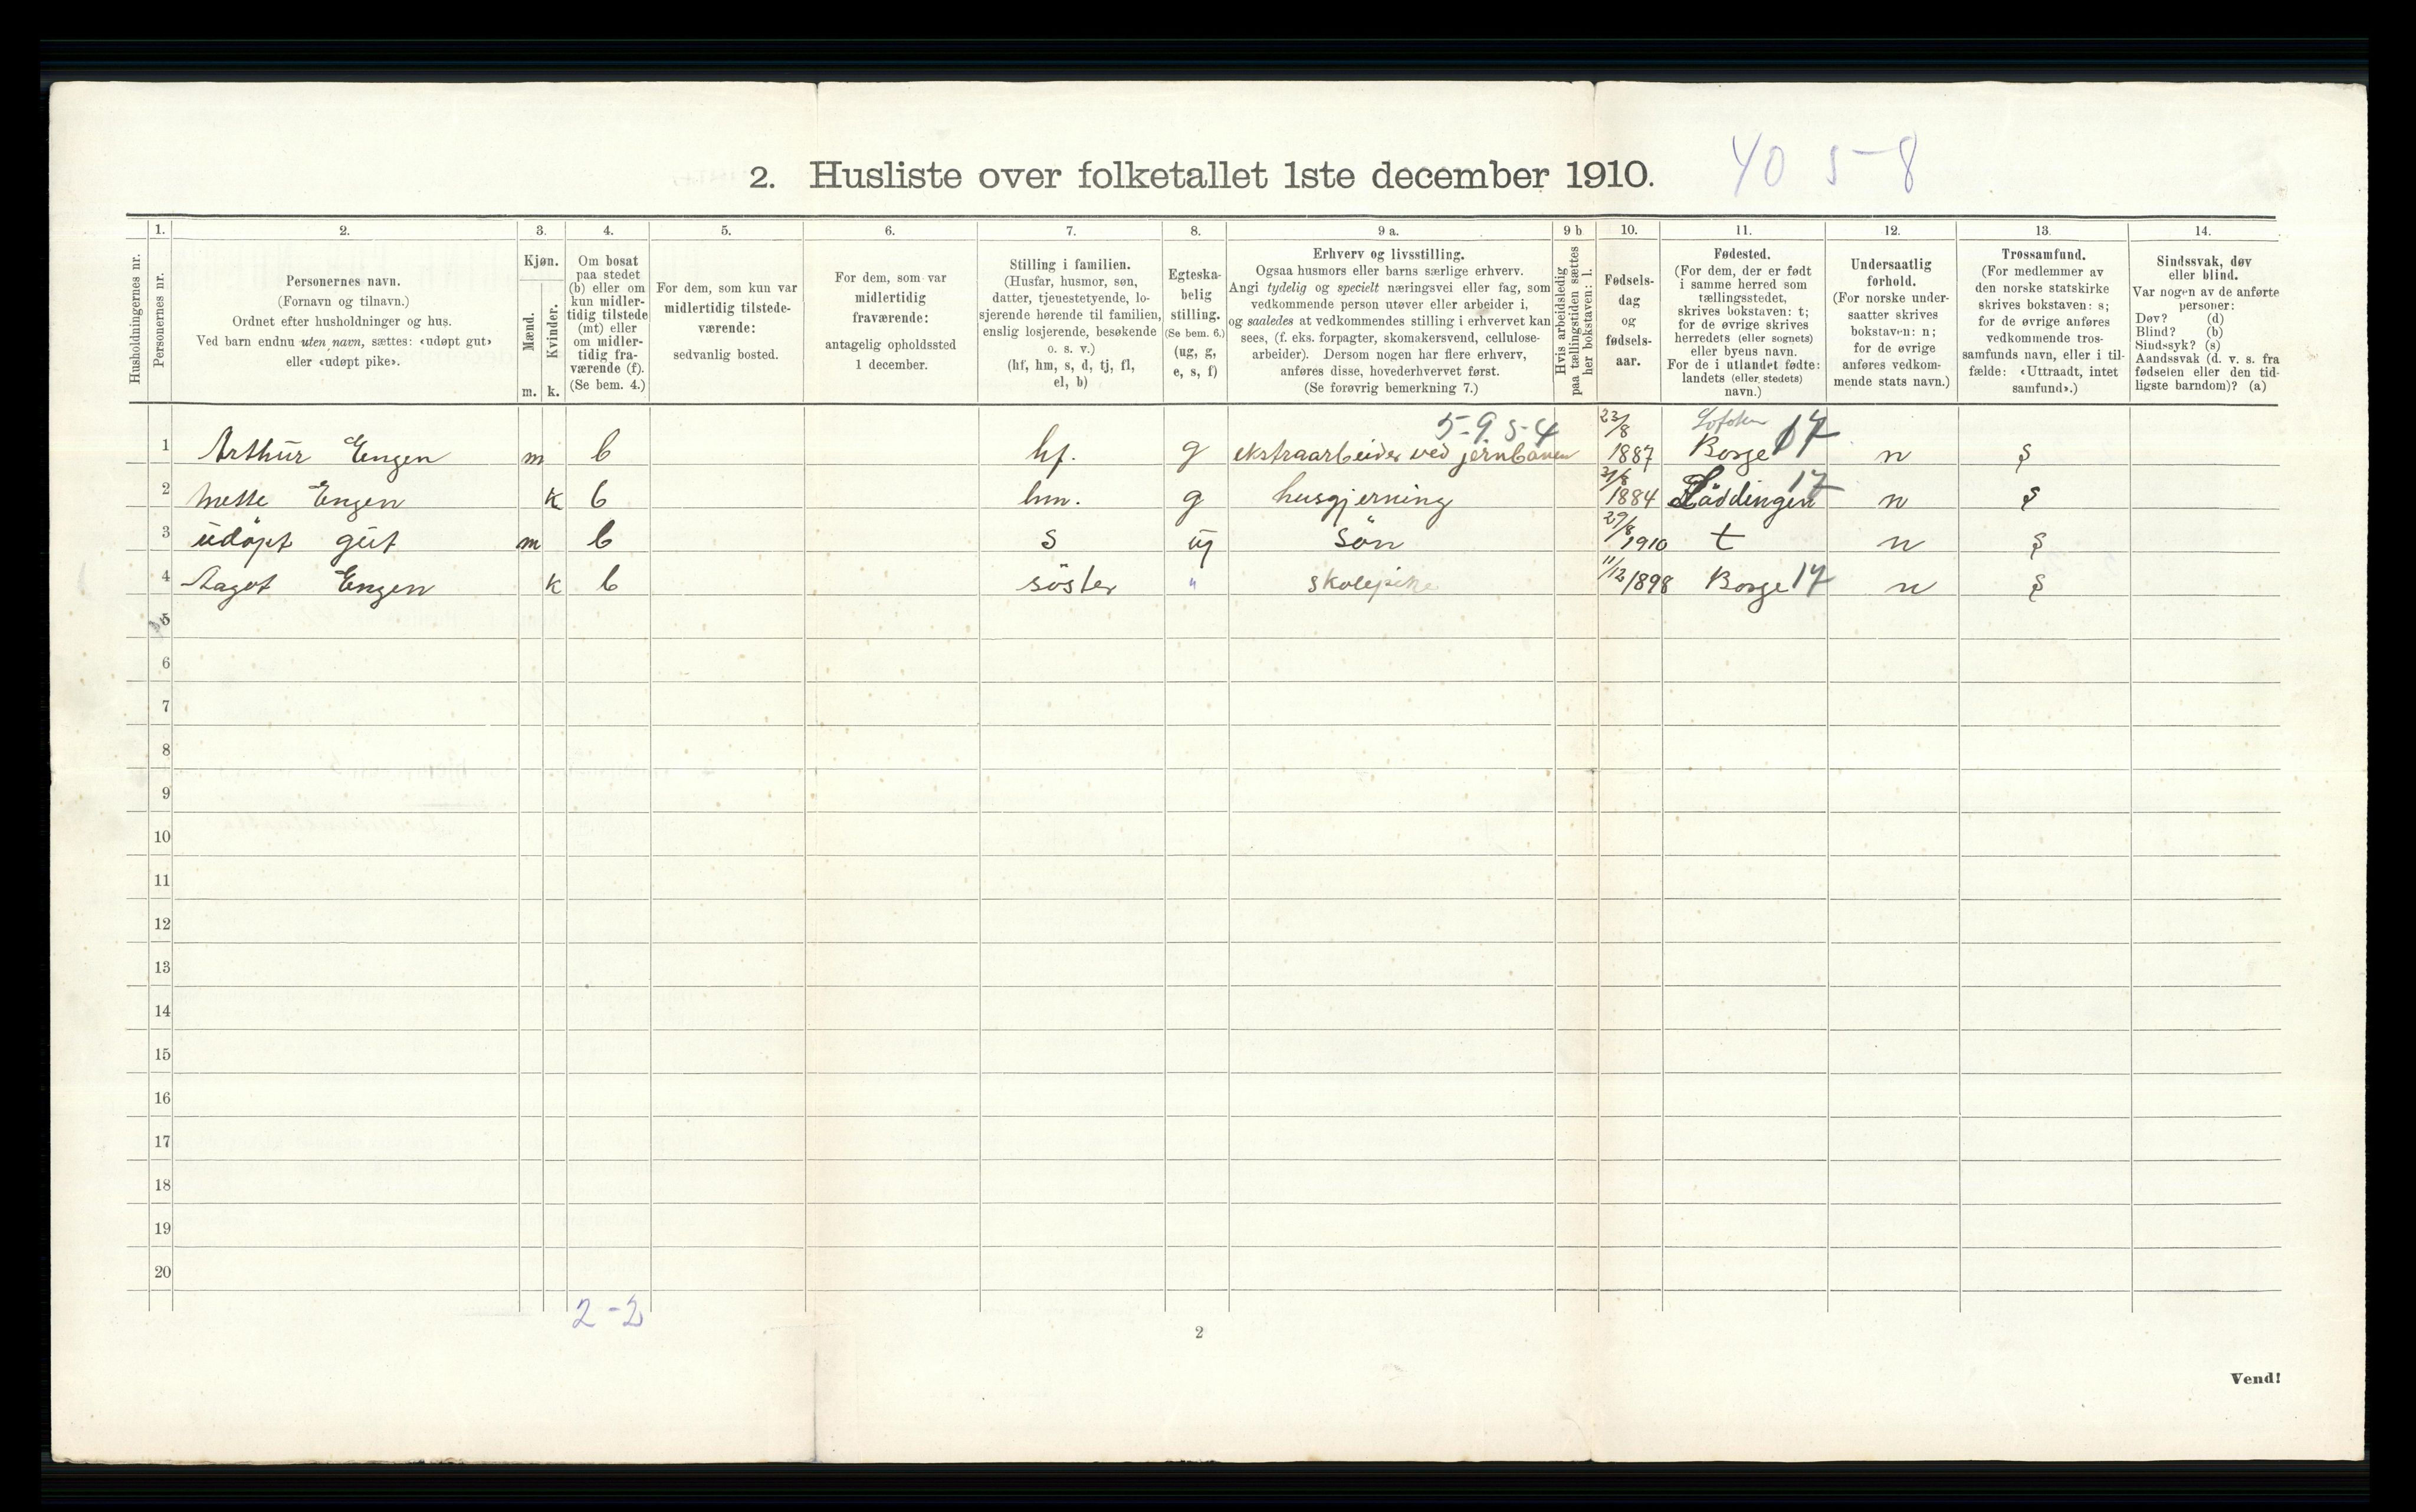 2. Husliste over folketallet 1ste december 1910.
40 5-8
Husholdningernes nr.
1. Personernes nr.
2. Personernes navn.
(Fornavn og tilnavn.)
Ordnet efter husholdninger og hus.
Ved barn endnu uten navn, sættes: «udøpt gut»
eller «udøpt pike».
3. Kjøn.
Mænd. Kvinder.
m. k.
4. Om bosat
paa stedet
(b) eller om
kun midler-
tidig tilstede
(mt) eller
om midler-
tidig fra-
værende (f).
(Se bem. 4.)
5. For dem, som kun var
midlertidig tilstede-
værende:
sedvanlig bosted.
6. For dem, som var
midlertidig
fraværende:
antagelig opholdssted
1 december.
7. Stilling i familien.
(Husfar, husmor, søn,
datter, tjenestetyende, lo-
sjerende hørende til familien,
enslig losjerende, besøkende
o. s. v.)
(hf, hm, s, d, tj, fl,
el, b)
8. Egteska-
belig
stilling.
(Se bem. 6.)
(ug, g,
e, s, f)
9 a. Erhverv og livsstilling.
Ogsaa husmors eller barns særlige erhverv.
Angi tydelig og specielt næringsvei eller fag, som
vedkommende person utøver eller arbeider i,
og saaledes at vedkommendes stilling i erhvervet kan
sees, (f. eks. forpagter, skomakersvend, cellulose-
arbeider). Dersom nogen har flere erhverv,
anføres disse, hovederhvervet først.
(Se forøvrig bemerkning 7.)
9 b Hvis arbeidsledig
paa tællingstiden sættes
her bokstaven: l.
10. Fødsels-
dag
og
fødsels-
aar.
11. Fødested.
(For dem, der er født
i samme herred som
tællingsstedet,
skrives bokstaven: t;
for de øvrige skrives
herredets (eller sognets)
eller byens navn.
For de i utlandet fødte:
landets (eller stedets)
navn.)
12. Undersaatlig
forhold.
(For norske under-
saatter skrives
bokstaven: n;
for de øvrige
anføres vedkom-
mende stats navn.)
13. Trossamfund.
(For medlemmer av
den norske statskirke
skrives bokstaven: s;
for de øvrige anføres
vedkommende tros-
samfunds navn, eller i til-
fælde: «Uttraadt, intet
samfund».)
14. Sindssvak, døv
eller blind.
Var nogen av de anførte
personer:
Døv? (d)
Blind? (b)
Sindssyk? (s)
Aandssvak (d. v. s. fra
fødselen eller den tid-
ligste barndom)? (a)
5-9 5-4 23/8 Lofoten
1 Arthur Engen m b hf. g ekstraarbeider ved jernbanen 1887 Borge 17 n s
2 Mette Engen k b hm. g husgjerning 1884 Löddingen 17 n s
3 udöpt gut m b s ug Sön 29/8 1910 t n s
4 Aagot Engen k b söster " skolepike 11/12 1898 Borge 17 n s
5
6
7
8
9
10
11
12
13
14
15
16
17
18
19
20
2-2
2
Vend!